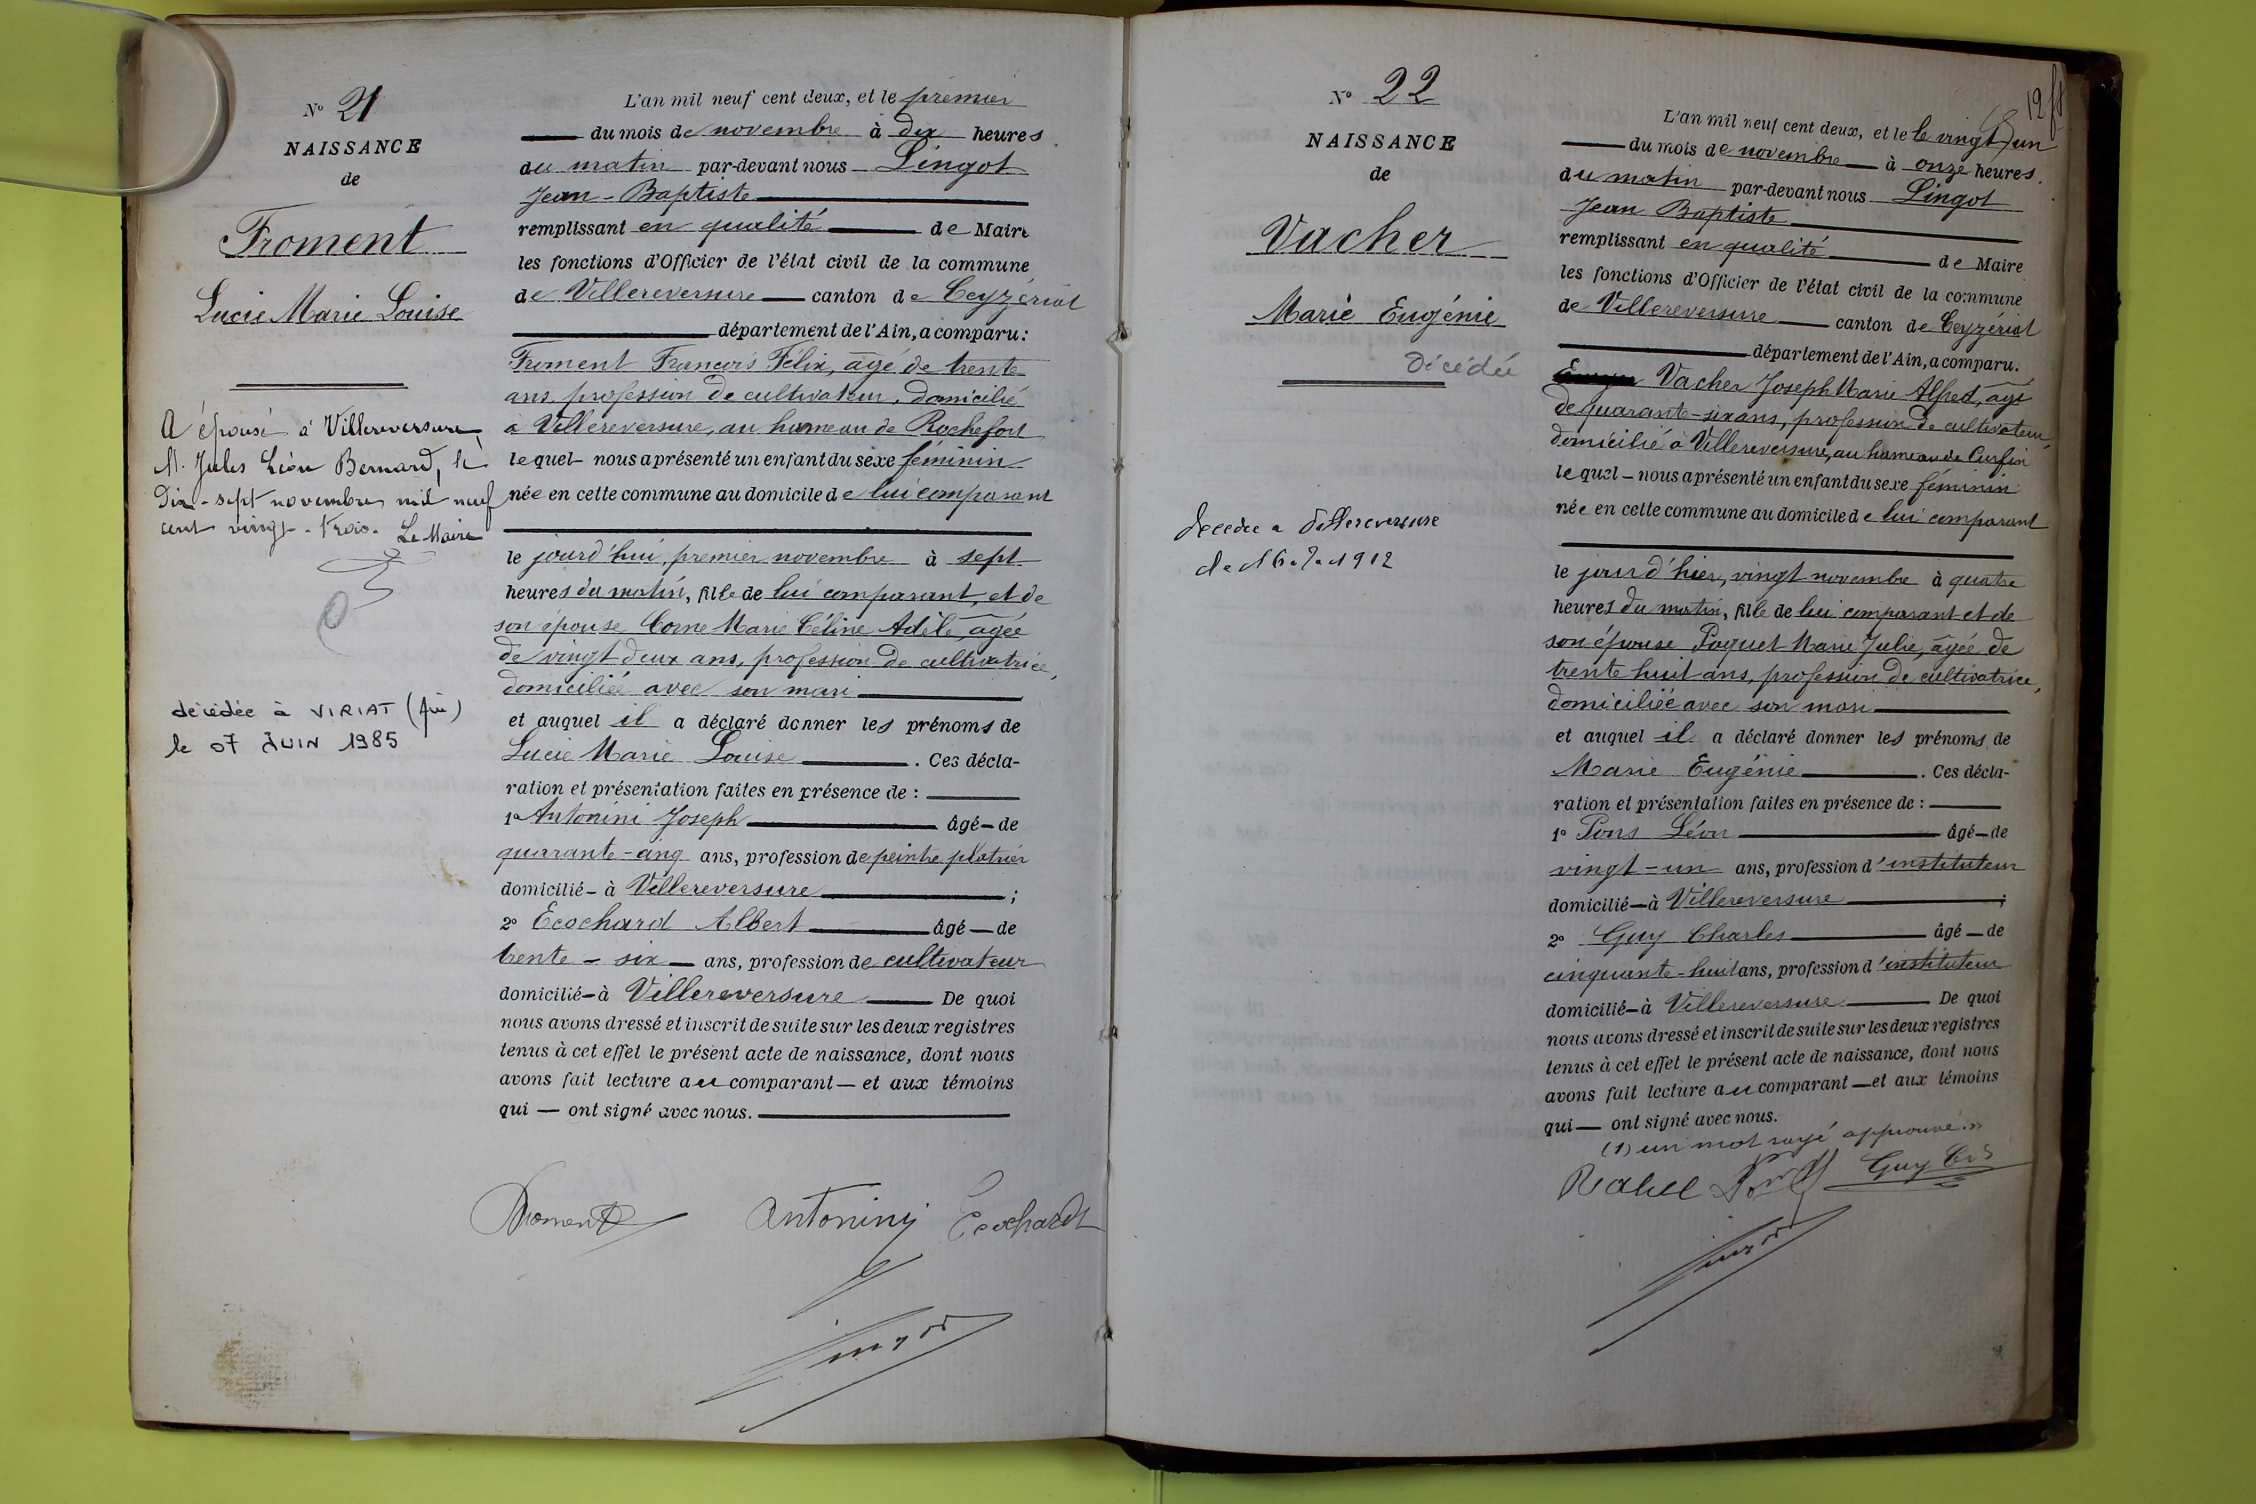 N° 21
NAISSANCE
de
Froment
Lucie Marie Louise
A épousé à Villereversure,
M. Jules Léon Bernard, le
Dix-sept novembre mil neuf
cent vingt-trois. Le Maire
décédée à VIRIAT (Ain)
le 07 JUIN 1985
L'an mil neuf cent deux, et le premier
du mois de novembre à dix heures
du matin par-devant nous Lingot
Jean-Baptiste
remplissant en qualité de Maire
les fonctions d'Officier de l'état civil de la commune
de Villereversure canton de Ceyzériat
département de l'Ain, a comparu :
Froment François Félix, âgé de trente
ans, profession de cultivateur, domicilié
à Villereversure, au hameau de Rochefort
lequel nous a présenté un enfant du sexe féminin
née en cette commune au domicile de lui comparant
le jourd'hui, premier novembre à sept
heures du matin, fille de lui comparant, et de
son épouse Corne Marie Céline Adèle, âgée
de vingt deux ans, profession de cultivatrice,
domiciliée avec son mari
et auquel il a déclaré donner les prénoms de
Lucie Marie Louise. Ces décla-
ration et présentation faites en présence de :
1° Antonini Joseph âgé de
quarante-cinq ans, profession de peintre plâtrier
domicilié à Villereversure ;
2° Ecochard Albert âgé de
trente-six ans, profession de cultivateur
domicilié à Villereversure De quoi
nous avons dressé et inscrit de suite sur les deux registres
tenus à cet effet le présent acte de naissance, dont nous
avons fait lecture au comparant et aux témoins
qui ont signé avec nous.
Froment Antonini Ecochard
Lingot
12
N° 22
NAISSANCE
de
Vacher
Marie Eugénie
Décédée
Décédée à Villereversure
L'an mil neuf cent deux, et le le vingt un
du mois de novembre à onze heures
du matin par-devant nous Lingot
Jean Baptiste
remplissant en qualité de Maire
les fonctions d'Officier de l'état civil de la commune
de Villereversure canton de Ceyzériat
département de l'Ain, a comparu.
Vacher Joseph Marie Alfred, âgé
de quarante-six ans, profession de cultivateur,
domicilié à Villereversure, au hameau de Curfin
lequel nous a présenté un enfant du sexe féminin
née en cette commune au domicile de lui comparant
le jour d'hier, vingt novembre à quatre
heures du matin, fille de lui comparant et de
son épouse Poquet Marie Julie, âgée de
trente huit ans, profession de cultivatrice,
domiciliée avec son mari
et auquel il a déclaré donner les prénoms de
Marie Eugénie. Ces décla-
ration et présentation faites en présence de :
1° Pons Léon âgé de
vingt-un ans, profession d'instituteur
domicilié à Villereversure ;
2° Guy Charles âgé de
cinquante-huit ans, profession d'instituteur
domicilié à Villereversure De quoi
nous avons dressé et inscrit de suite sur les deux registres
tenus à cet effet le présent acte de naissance, dont nous
avons fait lecture au comparant et aux témoins
qui ont signé avec nous.
(1) un mot rayé approuvé.
Pons Guy Ch
Lingot